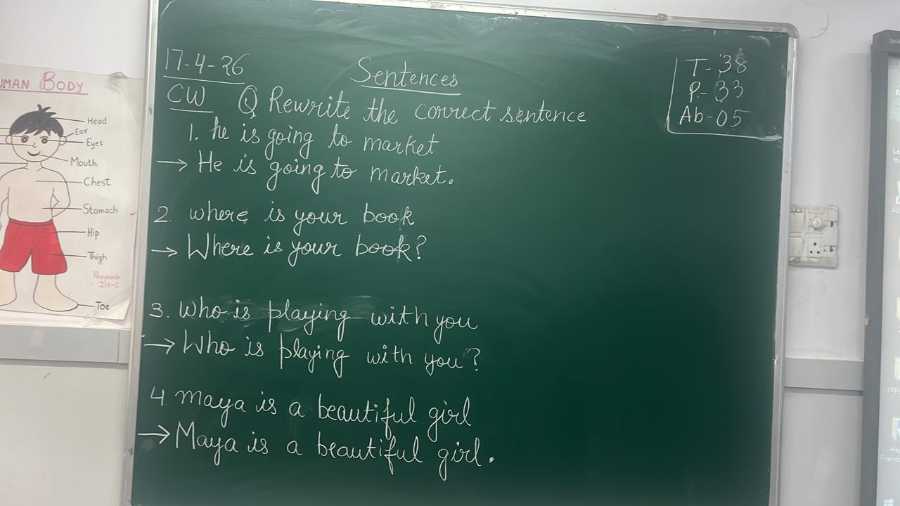 17-4-26
Sentences
T-38
P-33
Ab-05
CW Q Rewrite the correct sentence
1. he is going to market
→ He is going to market.
2. where is your book
→ Where is your book?
3. who is playing with you
→ Who is playing with you?
4 maya is a beautiful girl
→ Maya is a beautiful girl.
UMAN BODY
Head
Ear
Eyes
Mouth
Chest
Stomach
Hip
Thigh
Toe